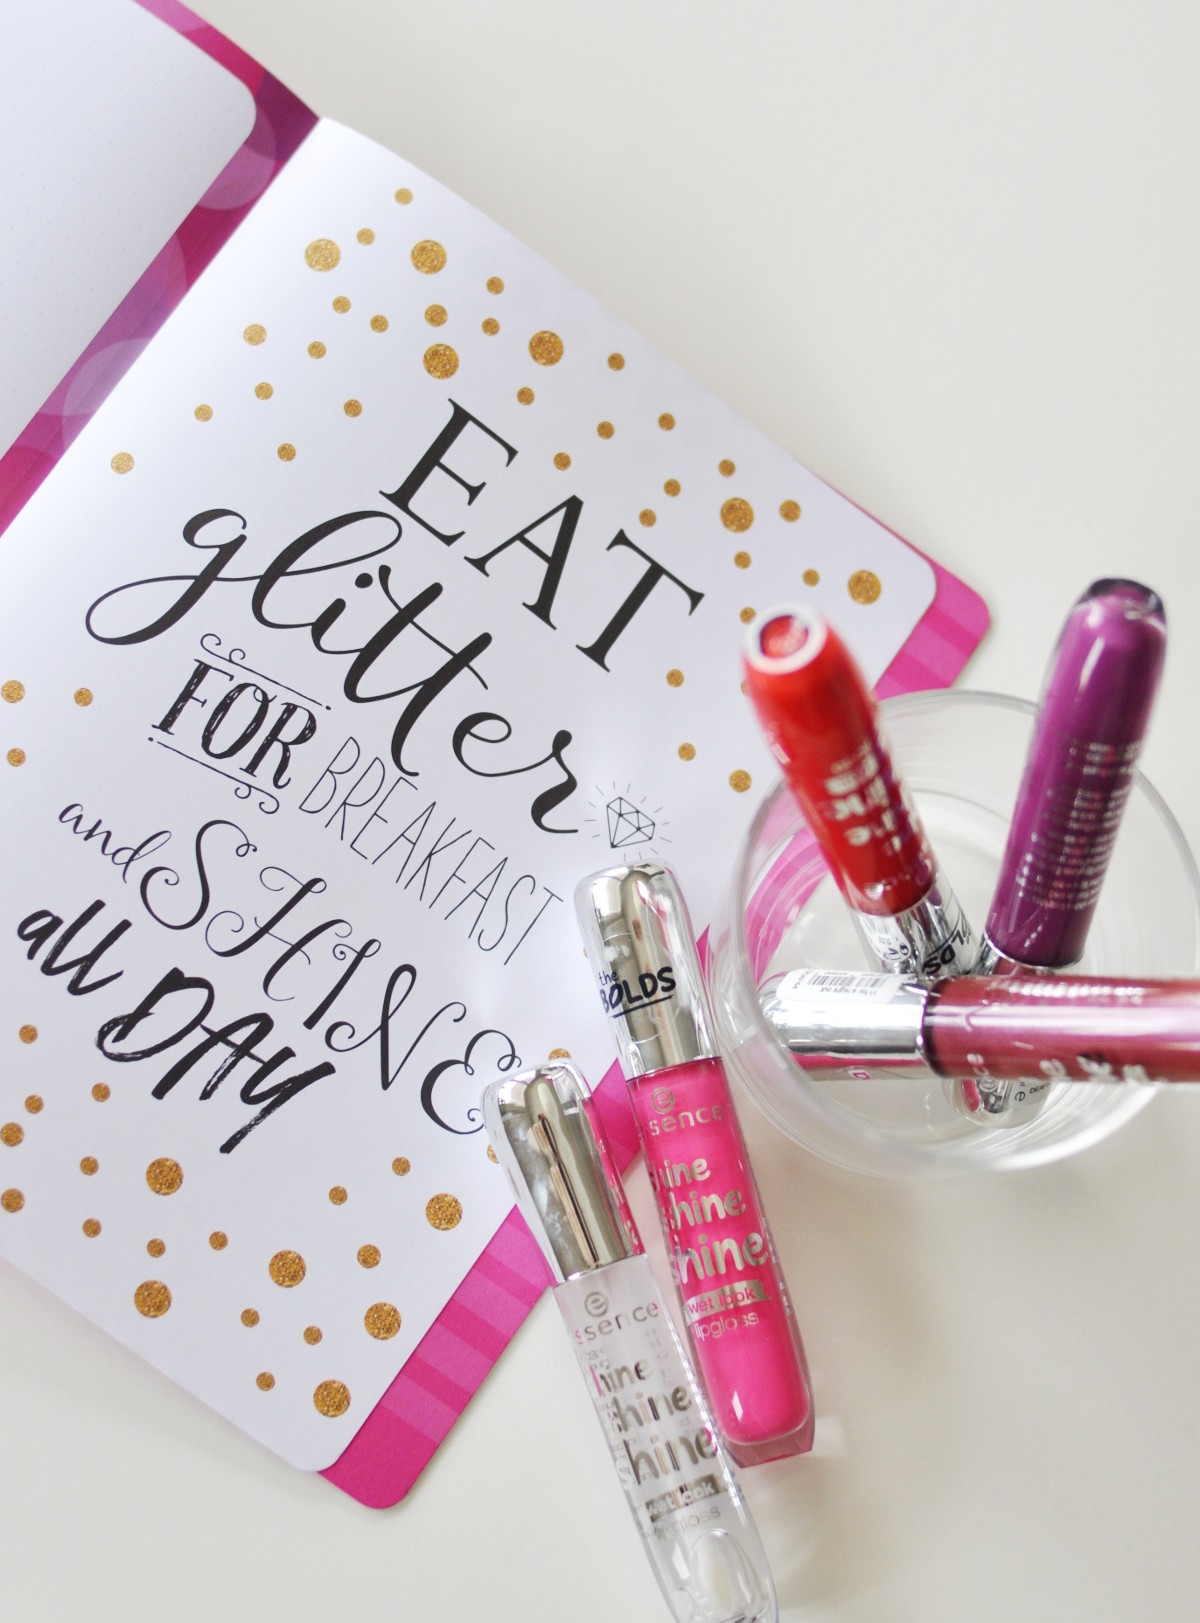 EAT
glitter
FOR BREAKFAST
and SHINE
all DAY
the
BOLDS
essence
shine
shine
shine
wet look
lipgloss
essence
shine
shine
shine
wet look
lipgloss